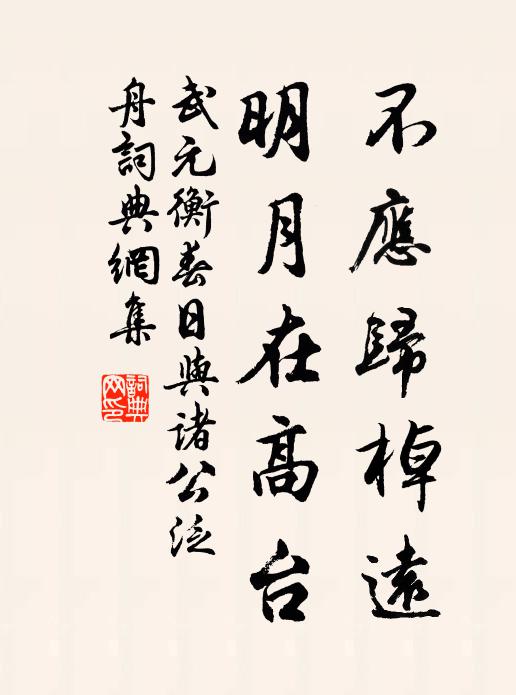 不應歸棹遠
明月在高台
武元衡春日與諸公泛
舟詞典網集
詞典
网印